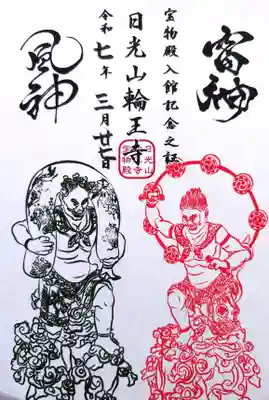 雷神
宝物殿入館記念之証
日光山輪王寺
令和七年三月廿七日
風神
日光山
輪王寺
宝物殿